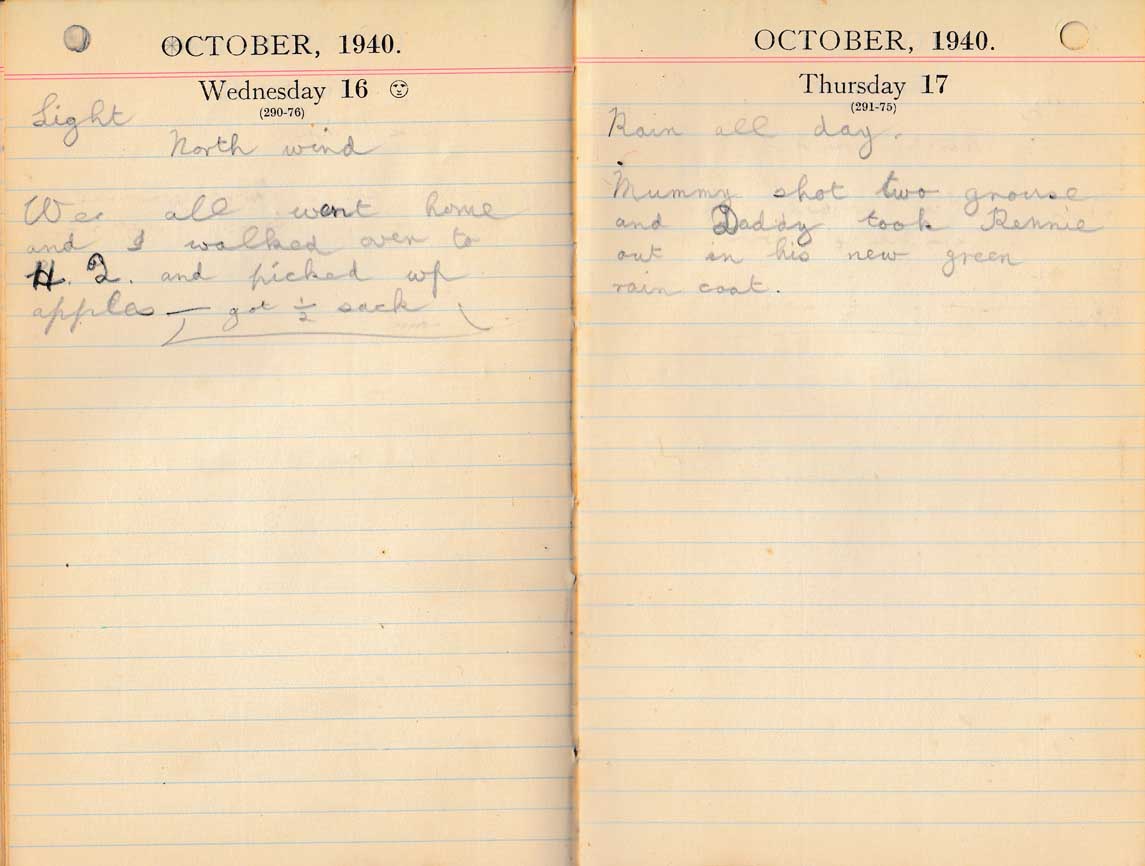 OCTOBER, 1940.
Wednesday 16
(290-76)
Light
North wind
Wee all went home
and I walked over to
H. Q. and picked up
apples — got ½ sack
OCTOBER, 1940.
Thursday 17
(291-75)
Rain all day.
Mummy shot two grouse
and Daddy took Rennie
out in his new green
rain coat.